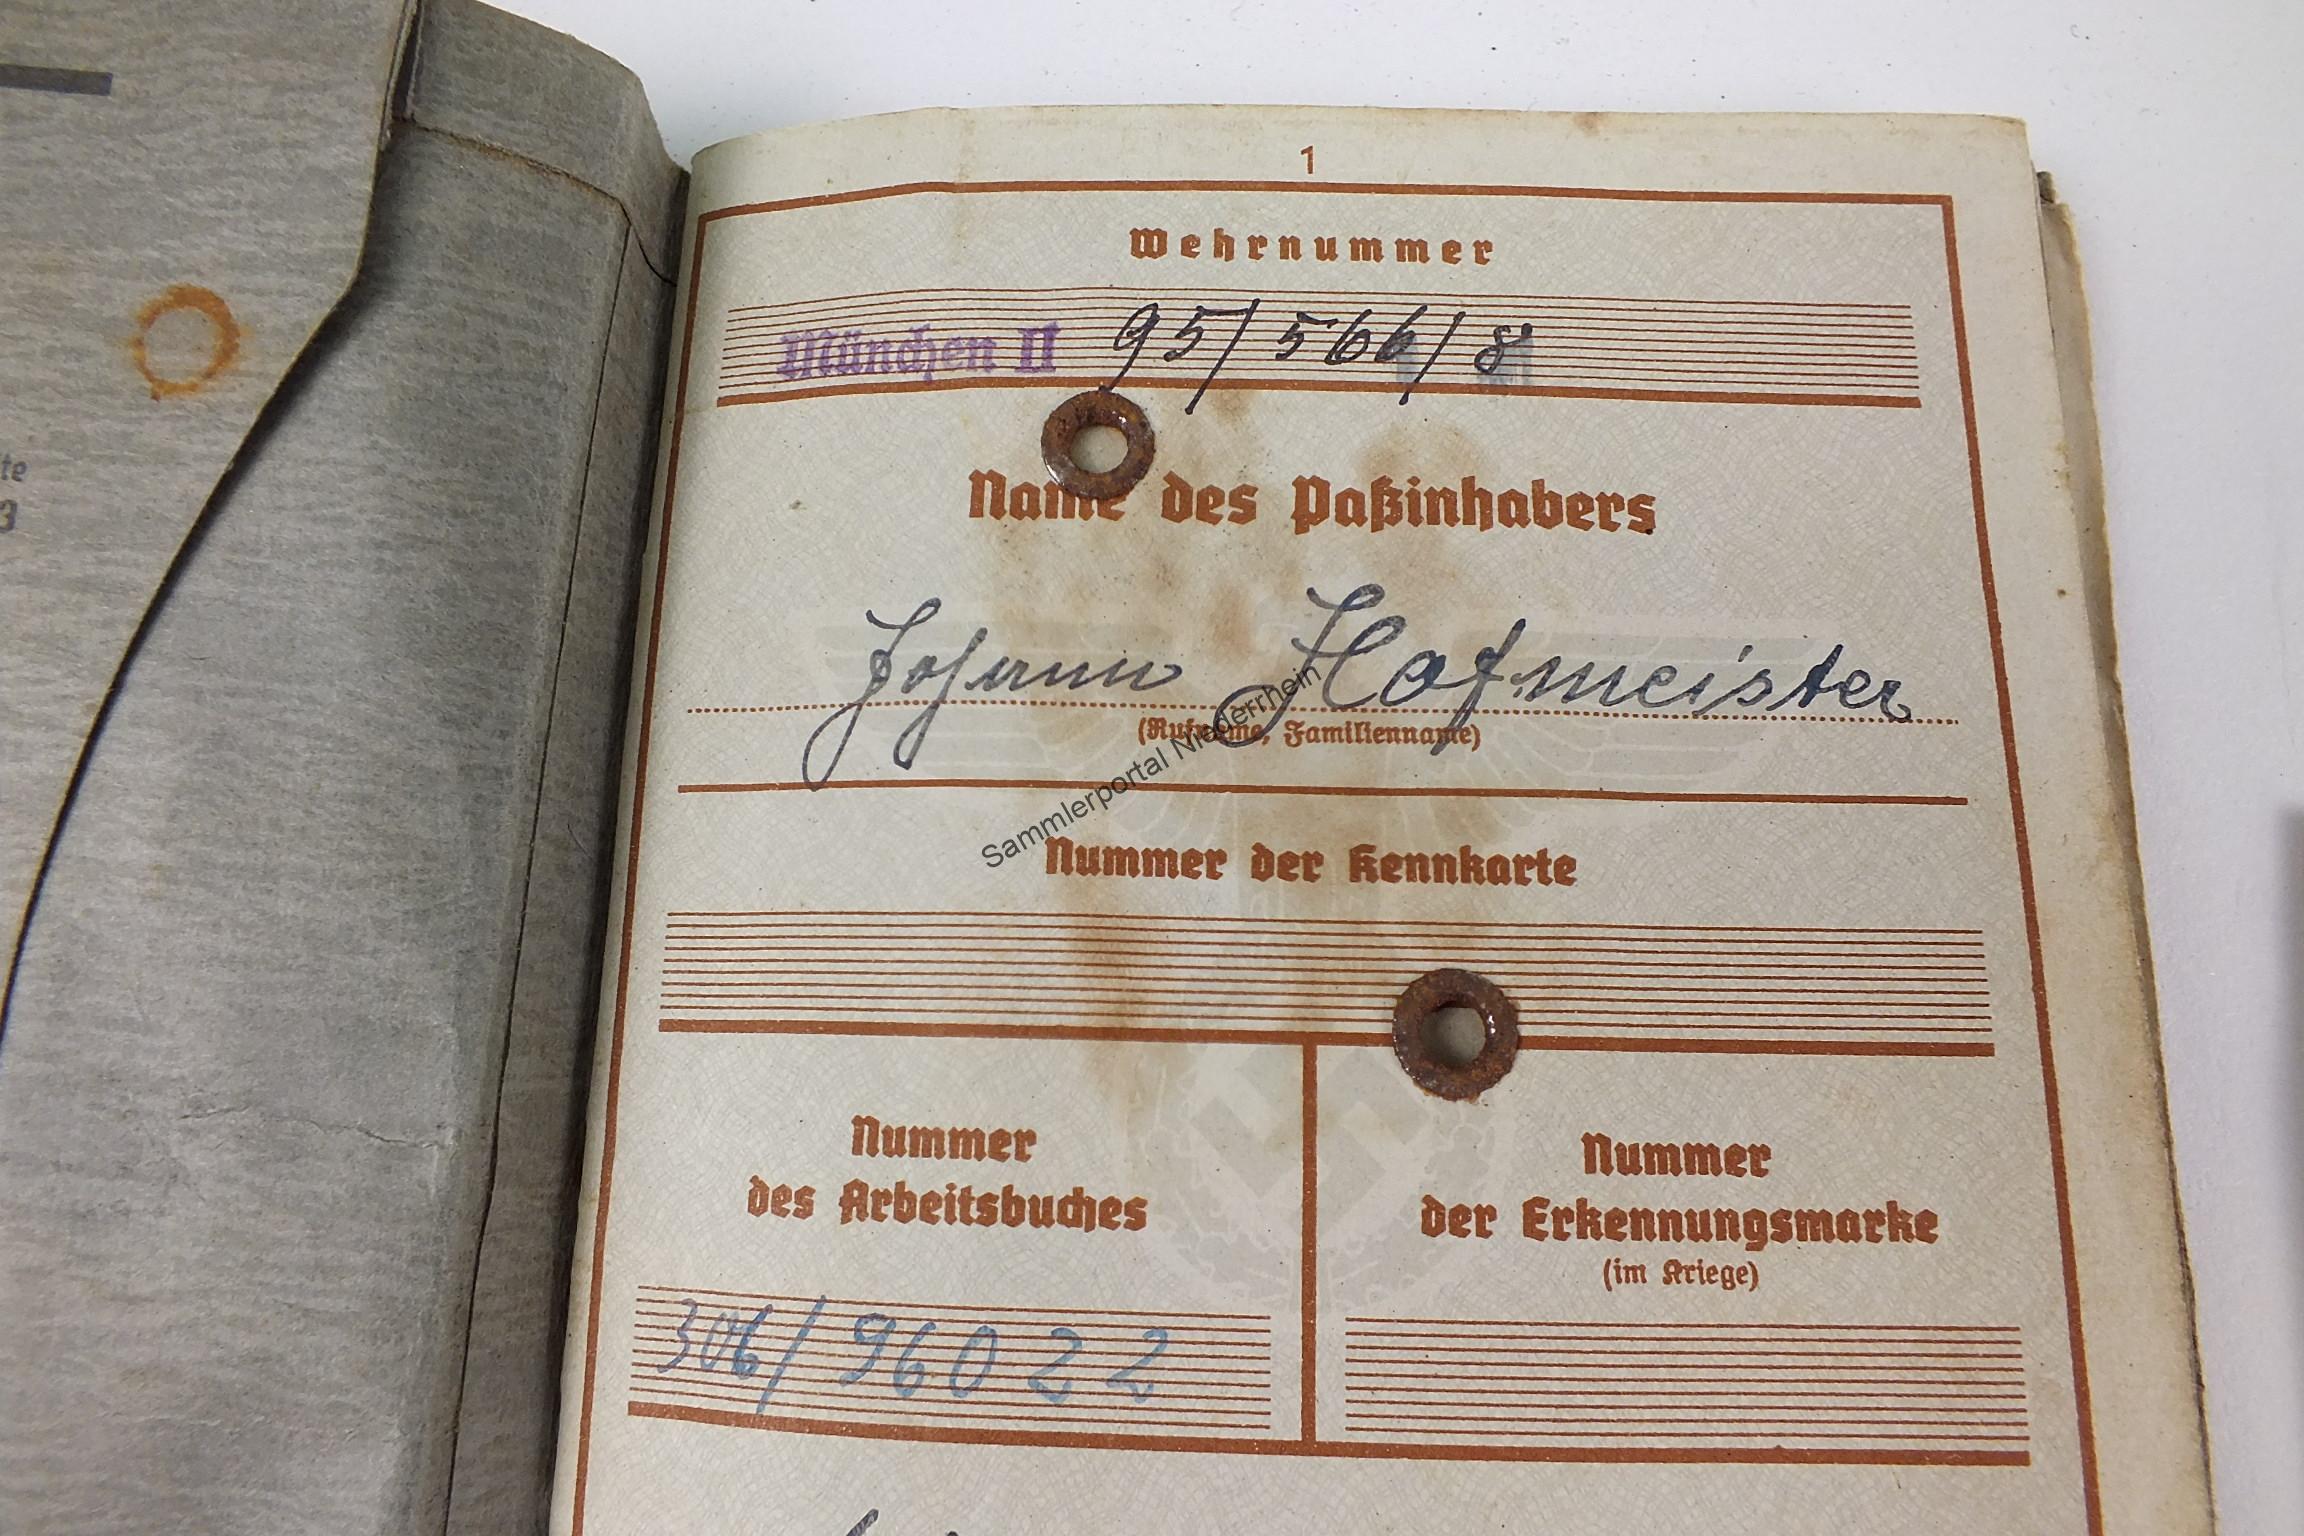 1
Wehrnummer
München II 95/566/8
Name des Paßinhabers
Johann Hofmeister
(Rufname, Familienname)
Sammlerportal Niederrhein
Nummer der Kennkarte
Nummer
des Arbeitsbuches
306/96022
Nummer
der Erkennungsmarke
(im Kriege)
te
3